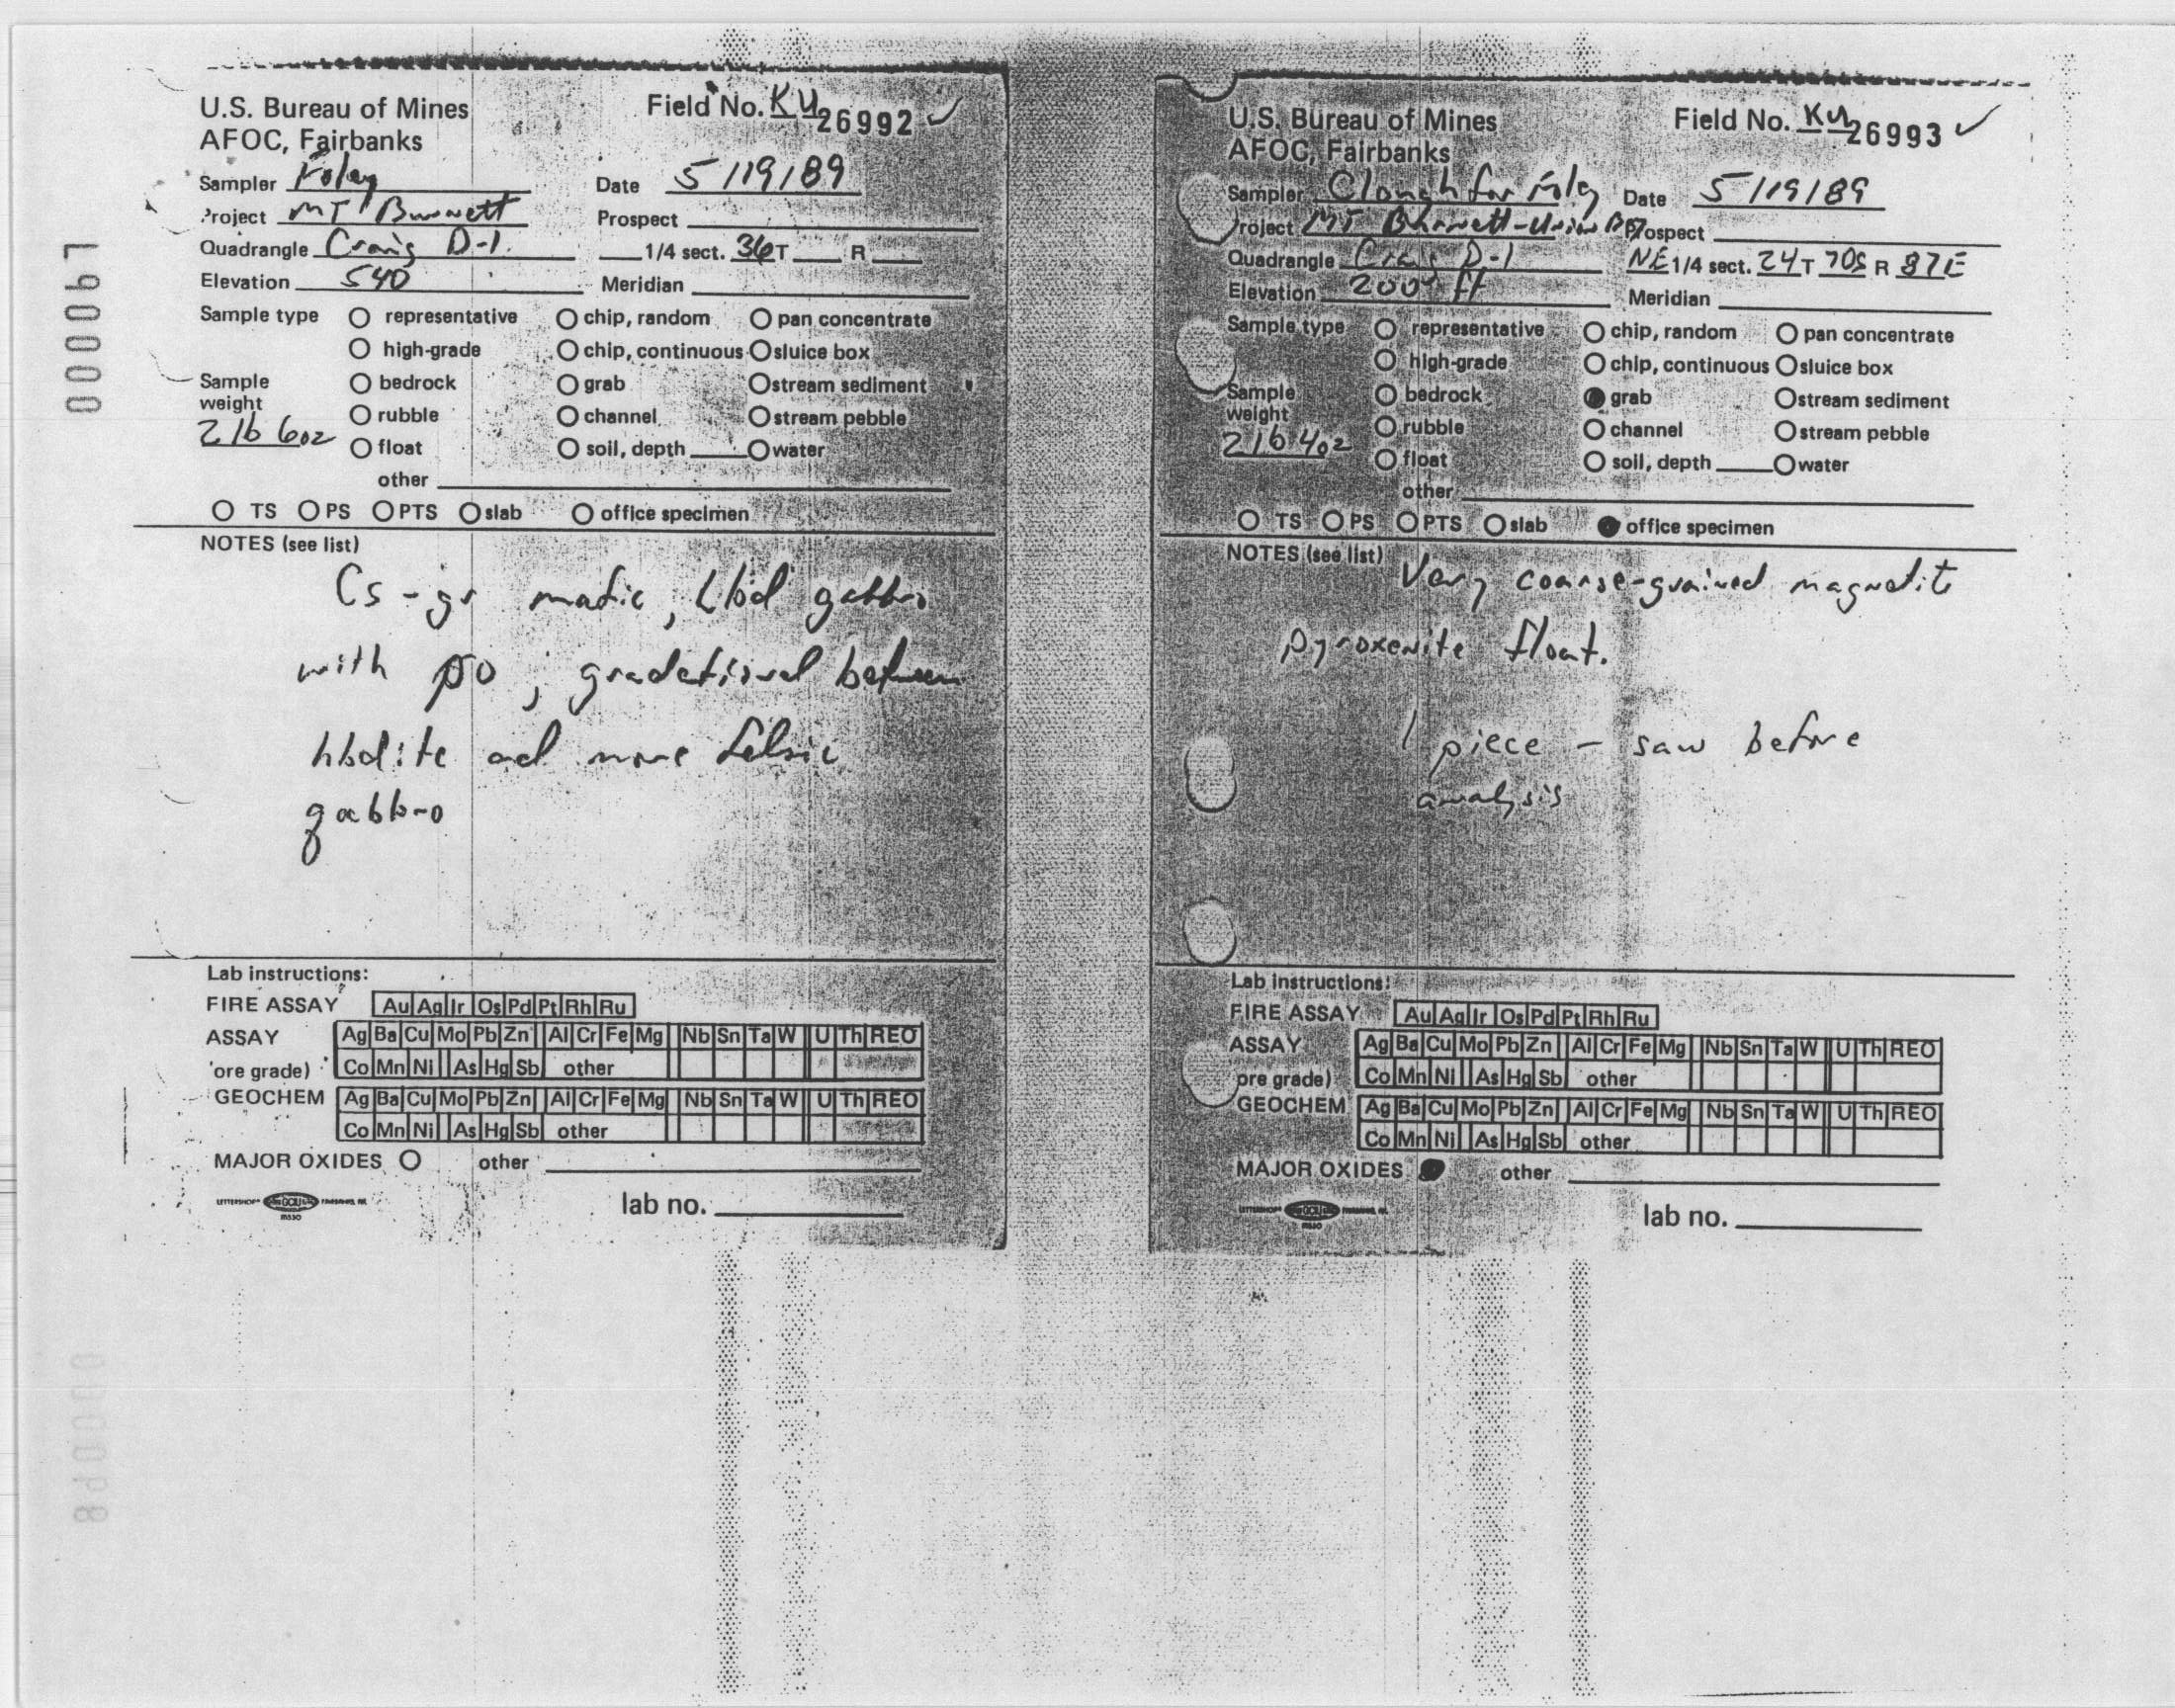 U.S. Bureau of Mines Field No. KU 26992 ✓
AFOC, Fairbanks
Sampler Foley Date 5/19/89
Project MT Burnett Prospect
Quadrangle Craig D-1. 1/4 sect. 36 T R
Elevation 540 Meridian
Sample type O representative O chip, random O pan concentrate
O high-grade O chip, continuous O sluice box
Sample O bedrock O grab O stream sediment
weight O rubble O channel O stream pebble
2 lb 6 oz O float O soil, depth O water
other
O TS O PS O PTS O slab O office specimen
NOTES (see list)
Cs-gr mafic, hbd gabbro
with po ; gradational between
hbdite ad more felsic
gabbro
Lab instructions:
FIRE ASSAY Au Ag Ir Os Pd Pt Rh Ru
ASSAY Ag Ba Cu Mo Pb Zn Al Cr Fe Mg Nb Sn Ta W U Th REO
ore grade) Co Mn Ni As Hg Sb other
GEOCHEM Ag Ba Cu Mo Pb Zn Al Cr Fe Mg Nb Sn Ta W U Th REO
Co Mn Ni As Hg Sb other
MAJOR OXIDES O other
lab no.
U.S. Bureau of Mines Field No. KU 26993 ✓
AFOC, Fairbanks
Sampler Clough for Foley Date 5/19/89
Project MT Burnett-Union Prospect
Quadrangle Craig D-1 NE 1/4 sect. 24 T 70S R 87E
Elevation 200 ft Meridian
Sample type O representative O chip, random O pan concentrate
O high-grade O chip, continuous O sluice box
Sample O bedrock ● grab O stream sediment
weight O rubble O channel O stream pebble
2 lb 4 oz O float O soil, depth O water
other
O TS O PS O PTS O slab ● office specimen
NOTES (see list) Very coarse-grained magnetite
pyroxenite float.
1 piece - saw before
analysis
Lab instructions:
FIRE ASSAY Au Ag Ir Os Pd Pt Rh Ru
ASSAY Ag Ba Cu Mo Pb Zn Al Cr Fe Mg Nb Sn Ta W U Th REO
ore grade) Co Mn Ni As Hg Sb other
GEOCHEM Ag Ba Cu Mo Pb Zn Al Cr Fe Mg Nb Sn Ta W U Th REO
Co Mn Ni As Hg Sb other
MAJOR OXIDES ● other
lab no.